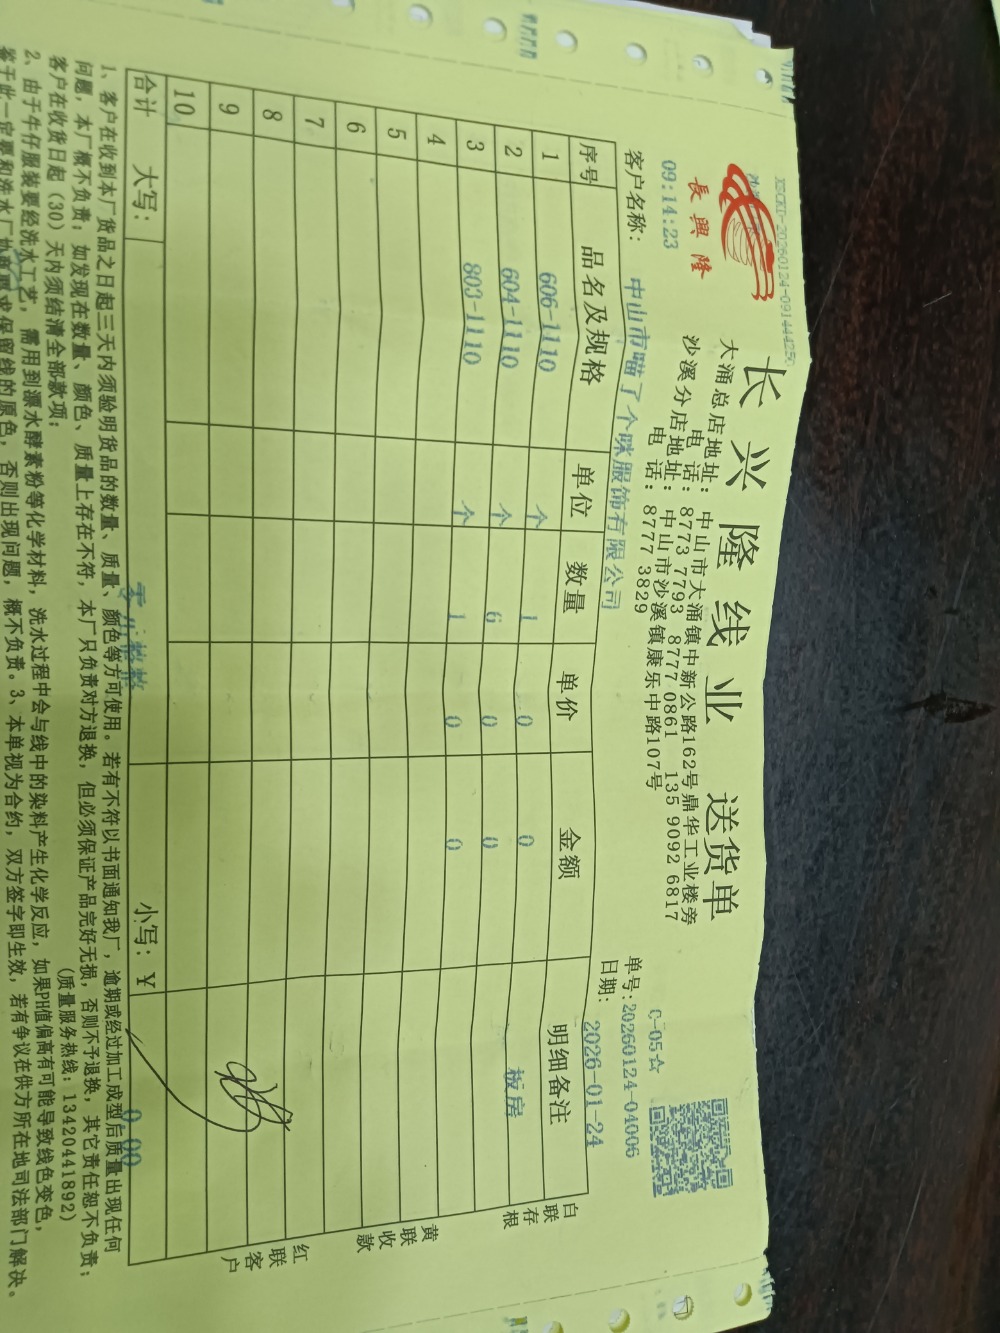 长兴隆线业 送货单
長興隆
大涌总店地址: 中山市大涌镇中新公路162号鼎华工业楼旁
电 话: 8773 7793 8777 0861 135 9092 6817
沙溪分店地址: 中山市沙溪镇康乐中路107号
电 话: 8777 3829
C-05☆
09:14:23
单号: 20260124-04006
客户名称: 中山市喵了个咪服饰有限公司
日期: 2026-01-24
序号 品名及规格 单位 数量 单价 金额 明细备注
1 606-1110 个 1 0 0
2 604-1110 个 6 0 0 板房
3 803-1110 个 1 0 0
4
5
6
7
8
9
10
合计 大写: 小写: ¥ 0.00
白联存根
黄联收款
红联客户
1、客户在收到本厂货品之日起三天内须验明货品的数量、质量、颜色等方可使用。若有不符以书面通知我厂, 逾期或经过加工成型后质量出现任何
问题, 本厂概不负责; 如发现在数量、颜色、质量上存在不符, 本厂只负责对方退换, 但必须保证产品完好无损, 否则不予退换, 其它责任恕不负责;
客户在收货日起 (30) 天内须结清全部款项; (质量服务热线: 13420441892)
2、由于牛仔服装要经洗水工艺, 需用到漂水酵素粉等化学材料, 洗水过程中会与线中的染料产生化学反应, 如果PH值偏高有可能导致线色变色,
鉴于此一定要和洗水厂协商要求保留线的原色, 否则出现问题, 概不负责。3、本单视为合约, 双方签字即生效, 若有争议在供方所在地司法部门解决。